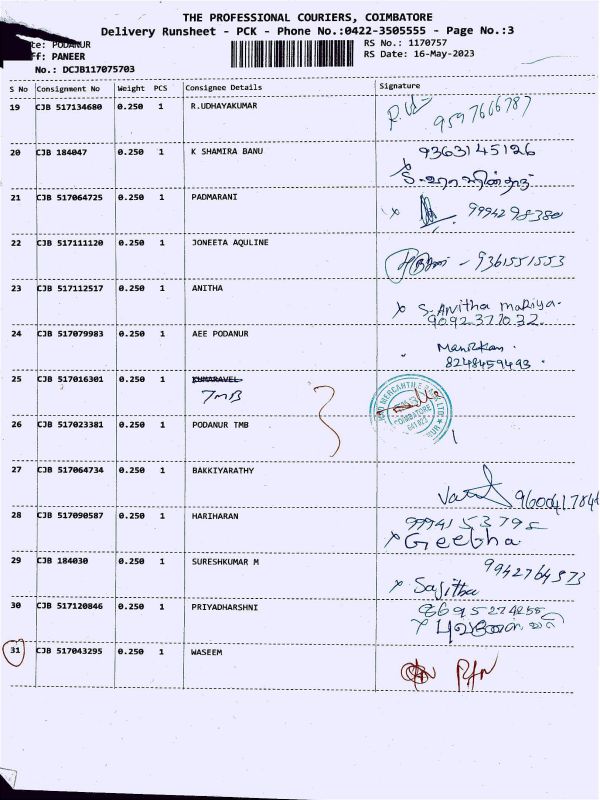 THE PROFESSIONAL COURIERS, COIMBATORE
Delivery Runsheet - PCK - Phone No.:0422-3505555 - Page No.:3
te: PODANUR
ff: PANEER
No.: DCJB117075703
RS No.: 1170757
RS Date: 16-May-2023
S No Consignment No Weight PCS Consignee Details Signature
19 CJB 517134680 0.250 1 R.UDHAYAKUMAR
20 CJB 184047 0.250 1 K SHAMIRA BANU 9363145126
21 CJB 517064725 0.250 1 PADMARANI x 9994298380
22 CJB 517111120 0.250 1 JONEETA AQULINE - 9361551553
23 CJB 517112517 0.250 1 ANITHA x S. Anitha mariya.
9092377032.
24 CJB 517079983 0.250 1 AEE PODANUR
8248459493 .
25 CJB 517016301 0.250 1 KUMARAVEL
TMB
26 CJB 517023381 0.250 1 PODANUR TMB
27 CJB 517064734 0.250 1 BAKKIYARATHY
28 CJB 517090587 0.250 1 HARIHARAN
x Geetha
29 CJB 184030 0.250 1 SURESHKUMAR M 9942764373
x Sajitha
30 CJB 517120846 0.250 1 PRIYADHARSHNI
31 CJB 517043295 0.250 1 WASEEM